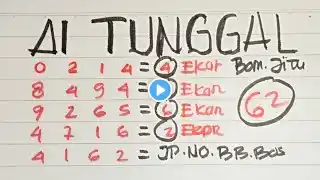 AI TUNGGAL
0 2 1 4 = 4 Ekor Bom Jitu
8 4 9 4 = Ekor 62
9 2 6 5 = 6 Ekor
4 7 1 6 = 2 Ekor
4 1 6 2 = JP. NO. BB. Bos